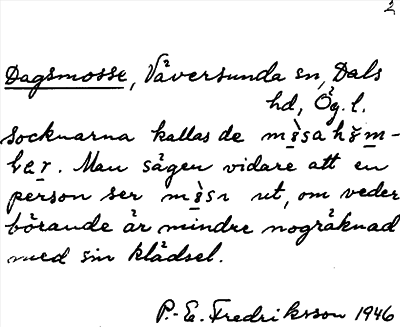 2
Dagsmosse, Väversunda sn, Dals
hd, Ög. l.
socknarna kallas de
ber. Man säger vidare att en
person ser ut, om veder
börande är mindre nogräknad
med sin klädsel.
P.-E. Fredriksson 1946